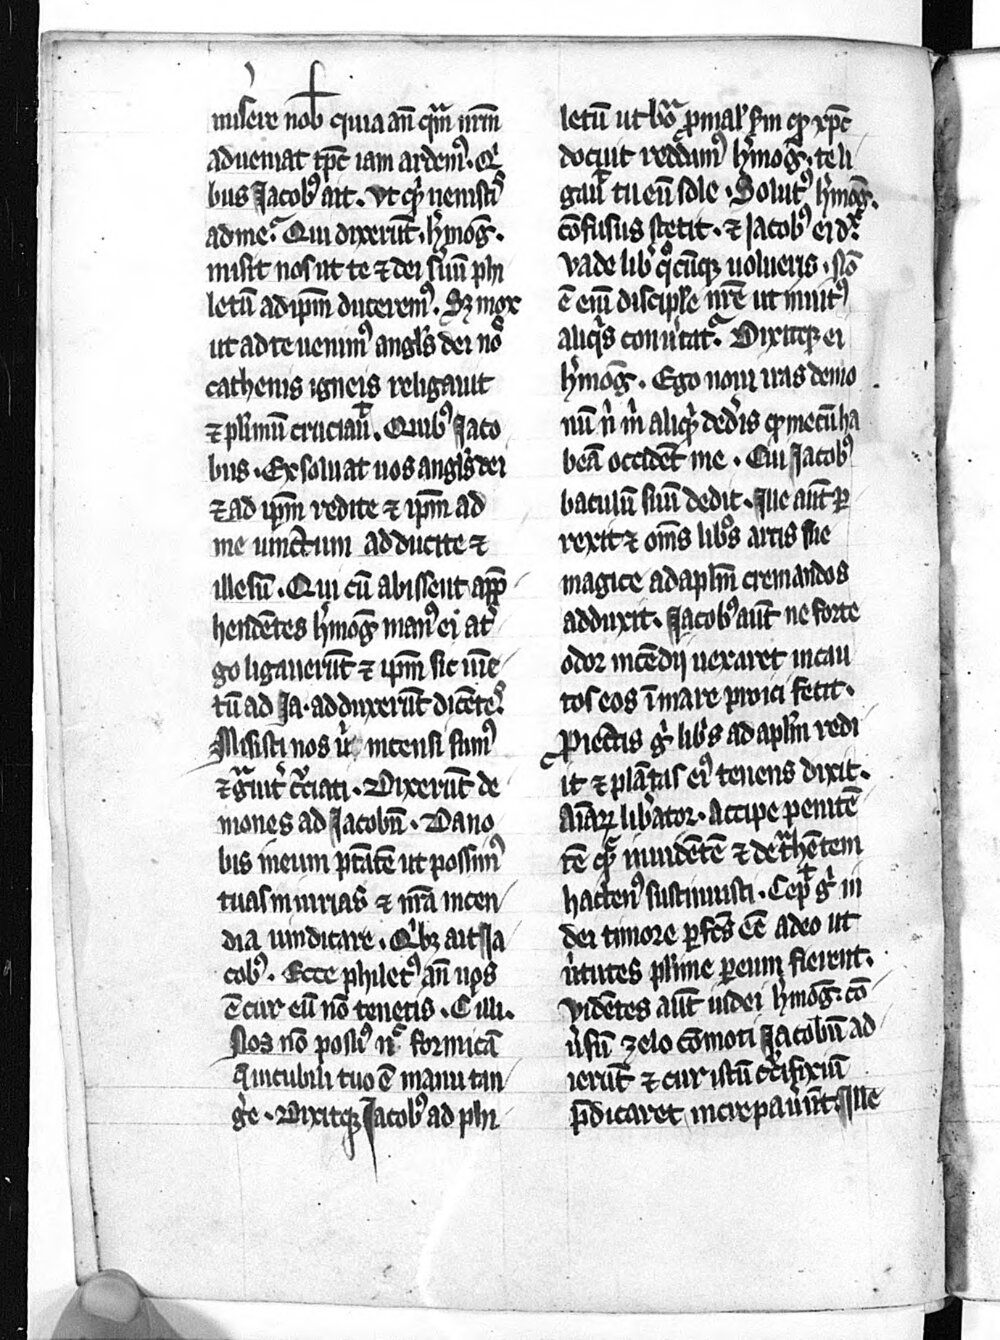 misere nob̄ quia an̄ qm̄ nr̄m
adveniat tp̄c iam ardemꝰ. Qͥ
bus Jacobꝰ ait. Vt qͥd venistꝭ
ad me. Qui dixerūt. hͤmog̅.
misit nos ut te ⁊ dei suū phi
letū ad ip̄m duceremꝰ. Sꝫ mox
ut ad te venimꝰ angl̓s dei nos
cathenis igneis religauit
⁊ pl̓imū cruciauͭ. Quibꝰ Jaco
bus. Exsoluat uos angl̓s dei
⁊ ad ip̄m redite ⁊ ip̄m ad
me vinctum adducite ⁊
illesū. Qui cū abissent app̄
hendētes hͤmog̅ manꝰ ei a tͬ
go ligauerūt ⁊ ip̄m sic vīc
tū ad Ja. adduxerūt dicētes
Misisti nos uͥ incensi sumꝰ
⁊ gͣuit̓ cͬciati. Dixerūt de
mones ad Jacobū. Da no
bis in eum ptātē ut possimꝰ
tuas iniurias ⁊ nr̄a incen
dia vindicare. Qͥbꝫ ait Ja
cobꝰ. Ecce philetꝰ an̄ vos
ē cur eū nō tenetis. Et illi.
Nos nō possumꝰ nͨ formicā
q̄ in cubili tuo ē manu tan
g̓e. Dixitqꝫ Jacobꝰ ad phi
letū ut boͣ ꝓ mal̓ ẜm qͩ xp̄c
docuit reddamꝰ hͤmog̅. te li
gauͭ tu eū solue. Solutꝰ hͤmog̅.
cōfusus stetit. ⁊ Jacobꝰ ei dͬ
Vade lib̓ qͦcūqꝫ uolueris. Nō
ē eīm discipl̓e nr̄e ut inuitꝰ
aliqͥs conu̓tatͬ. Dixitqꝫ ei
hͤmog̅. Ego noui iras demo
nū nͥ mͥ aliqͥd ded̓is qͩ mecū ha
beā occidēt me. Cui Jacobꝰ
baculū suū dedit. Ille aūt ꝑ
rexit ⁊ om̄s lib̓os artis sue
magice ad apl̄m cremandos
adduxit. Jacobꝰ aūt ne forte
odor incēdij uexaret incau
tos eos ī mare proici fecit.
Proiectis gͦ lib̓s ad apl̄m redi
it ⁊ plātas eiꝰ tenens dixit.
Aīaꝝ lib̓ator. accipe penitē
tē qͣ inuidētē ⁊ detͣhētem
hactenꝰ sustinuisti. Cepͭ gͦ in
dei timore ꝑfcs̄ ēē adeo ut
u̓tutes pl̓ime ꝑ eum fierent.
Videntes aūt iudei hͤmog̅. cō
u̓sū zelo cōmoti Jacobū ad
ierūt ⁊ cur istū cͬcifixū
p̄dicaret increpau̓ūt. Ille